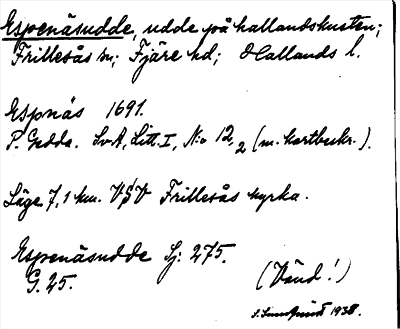 Espenäsudde, udde på hallandskusten;
Frillesås sn; Fjäre hd; Hallands l.
Espnäs 1691.
P. Gedda. SvA, Litt. I, No 12, 2 (m. kartbeskr.).
Läge 7,1 km. VSV Frillesås kyrka.
Espenäsudde Sj: 275.
G. 25.
(Vänd!)
1938.